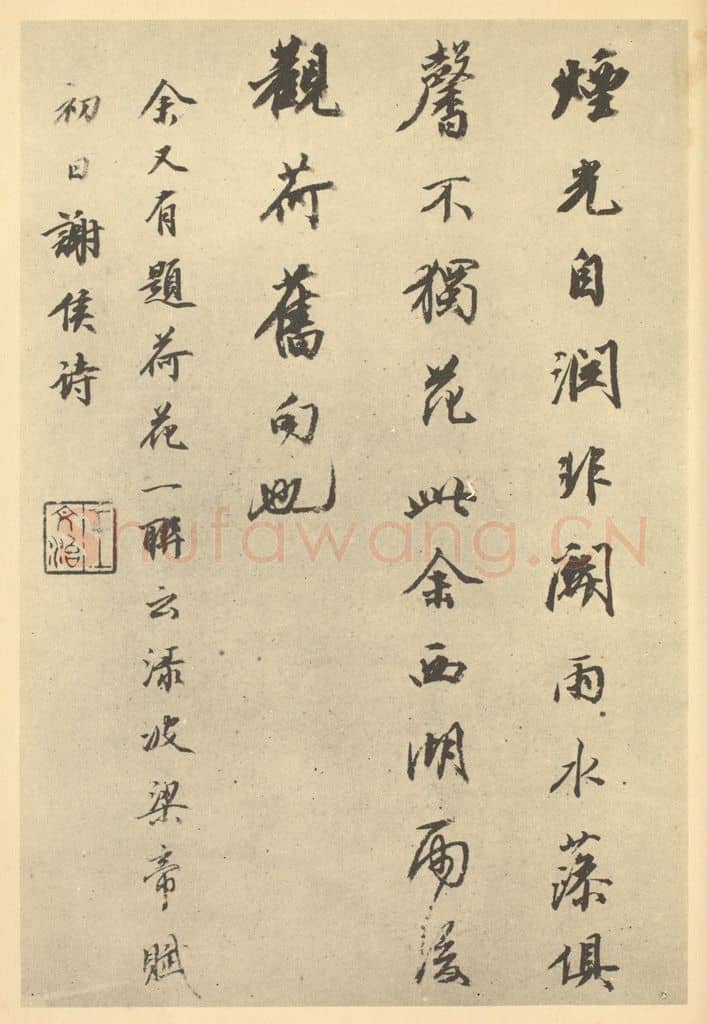 煙光自潤非關雨水藻俱
馨不獨花此余西湖雨後
觀荷舊句也
余又有題荷花一聯云渌波梁帝賦
初日謝侯詩
文治
Shufawang.CN